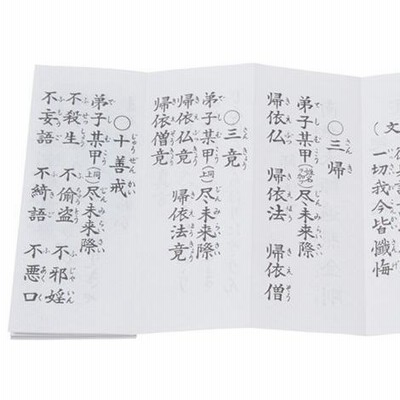 (文
一切我今皆懺悔
○三帰
弟子某甲尽未来際
帰依仏 帰依法 帰依僧
○三竟
弟子某甲(上同)尽未来際
帰依仏竟 帰依法竟
帰依僧竟
○十善戒
弟子某甲(上同)尽未来際
不殺生 不偸盗 不邪婬
不妄語 不綺語 不悪口